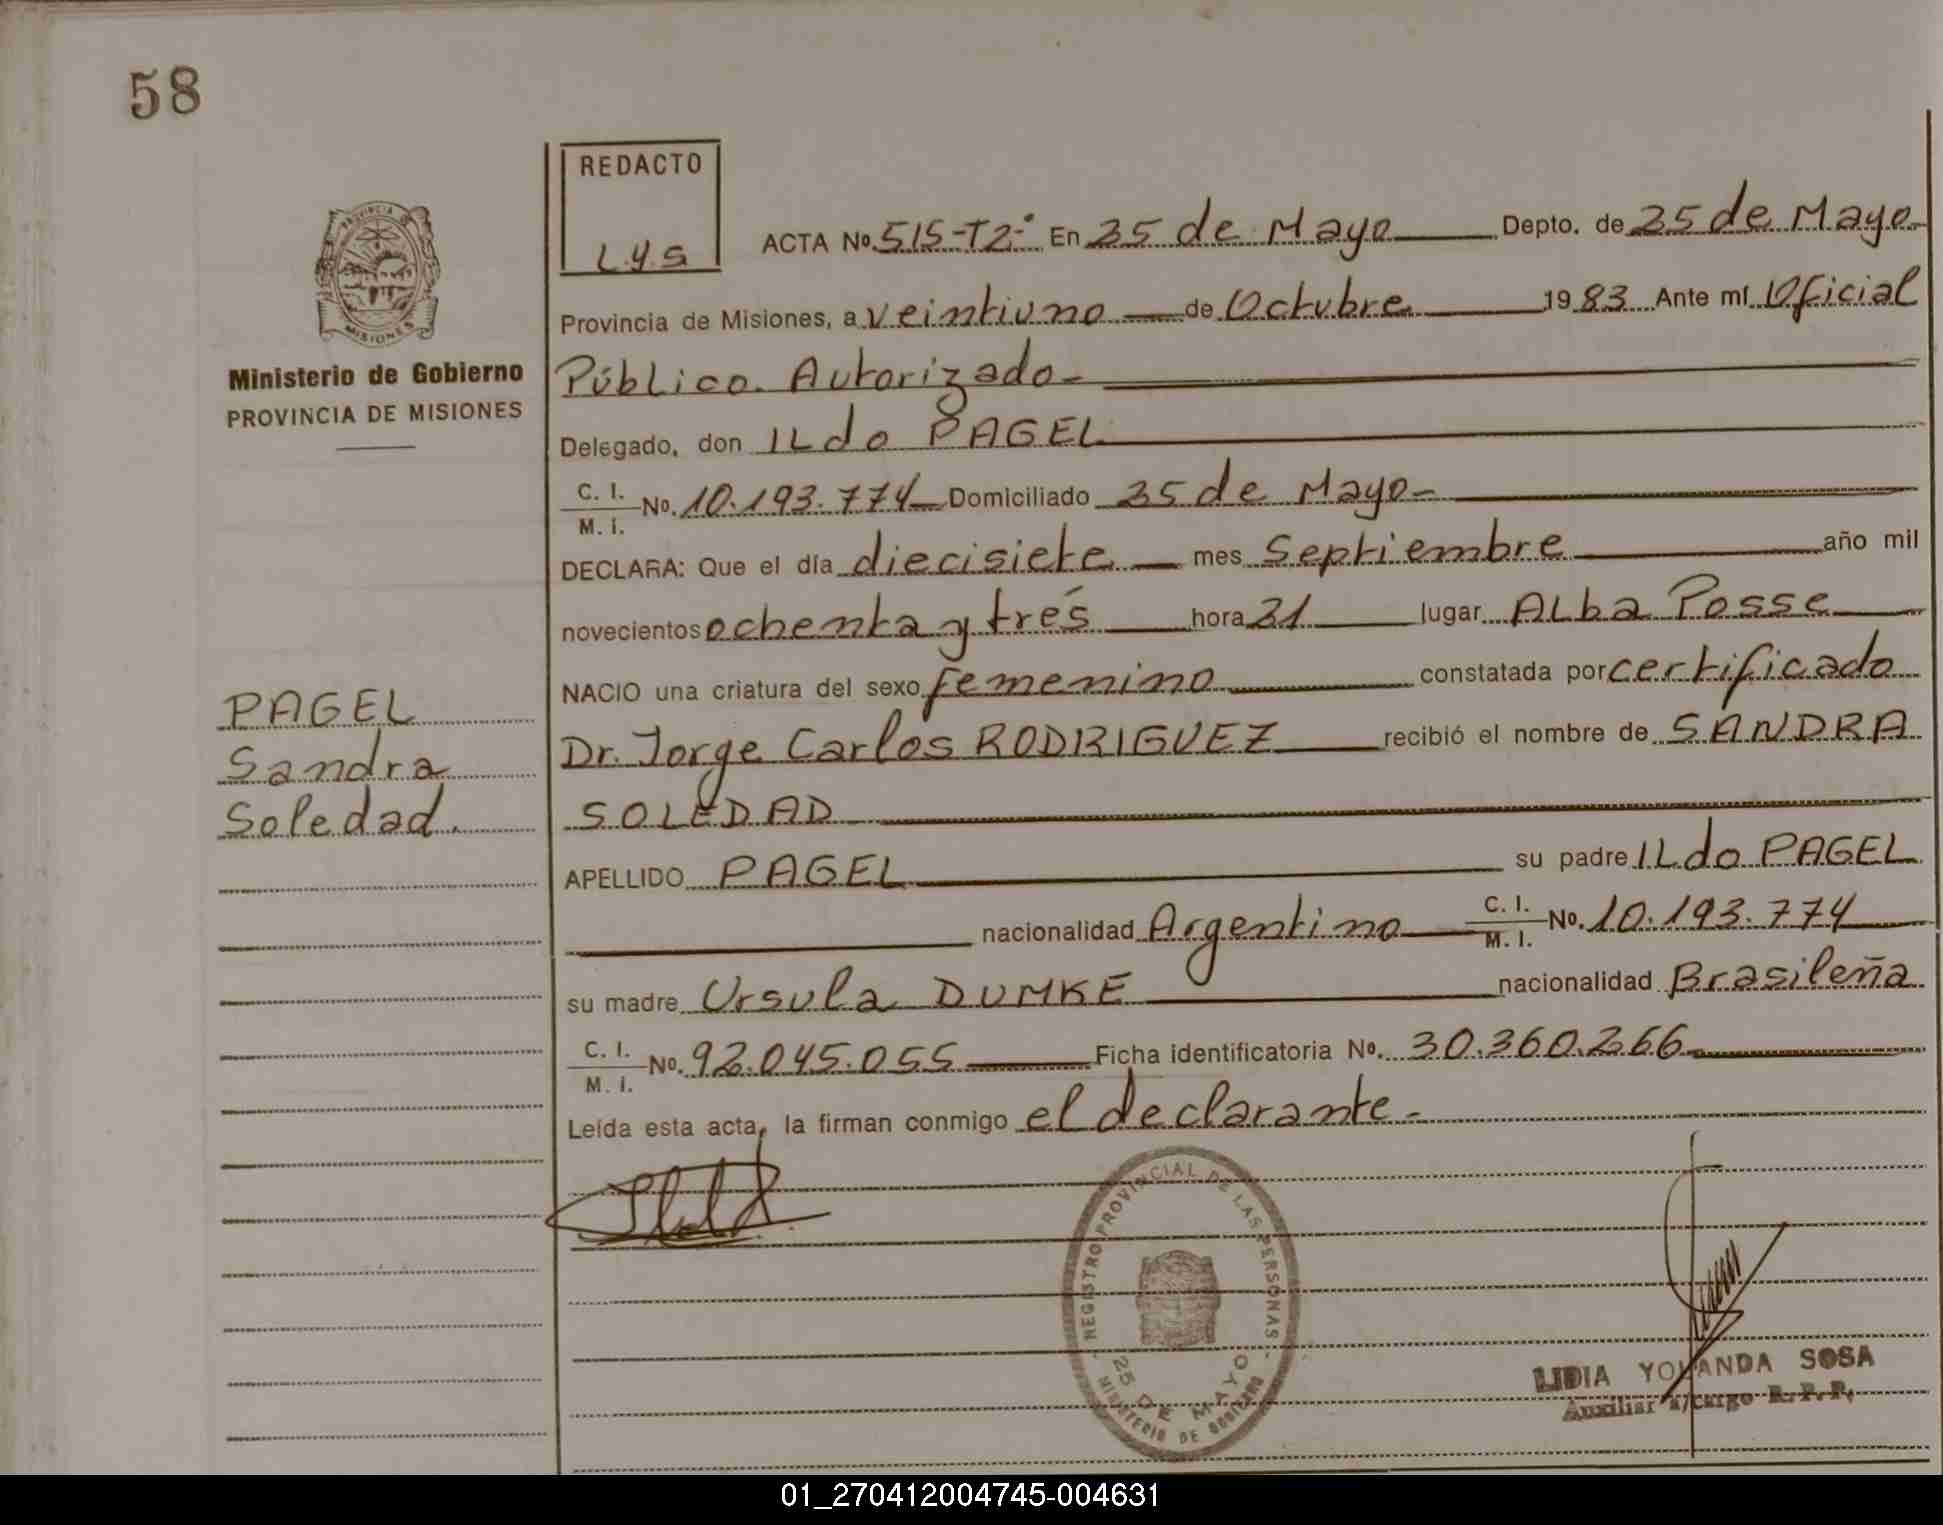 58
REDACTO
L.Y.S
PROVINCIA DE
MISIONES
Ministerio de Gobierno
PROVINCIA DE MISIONES
PAGEL
Sandra
Soledad.
ACTA No. 515-T2-° En 25 de Mayo Depto. de 25 de Mayo
Provincia de Misiones, a veintiuno de Octubre 1983 Ante mí Oficial
Público Autorizado-
Delegado, don ILdo PAGEL
C. I. / M. I. No. 10.193.774 Domiciliado 25 de Mayo-
DECLARA: Que el día diecisiete mes Septiembre año mil
novecientos ochenta y trés hora 21 lugar ALba Posse
NACIO una criatura del sexo femenino constatada por certificado
Dr. Jorge Carlos RODRIGUEZ recibió el nombre de SANDRA
SOLEDAD
APELLIDO PAGEL su padre ILdo PAGEL
nacionalidad Argentino C. I. / M. I. No. 10.193.774
su madre Ursula DUMKE nacionalidad Brasileña
C. I. / M. I. No. 92.045.055 Ficha identificatoria No. 30.360.266
Leída esta acta, la firman conmigo el declarante-
REGISTRO PROVINCIAL DE LAS PERSONAS
25 DE MAYO
MINISTERIO DE GOBIERNO
LIDIA YOLANDA SOSA
Auxiliar a/cargo R. P. P.
01_270412004745-004631